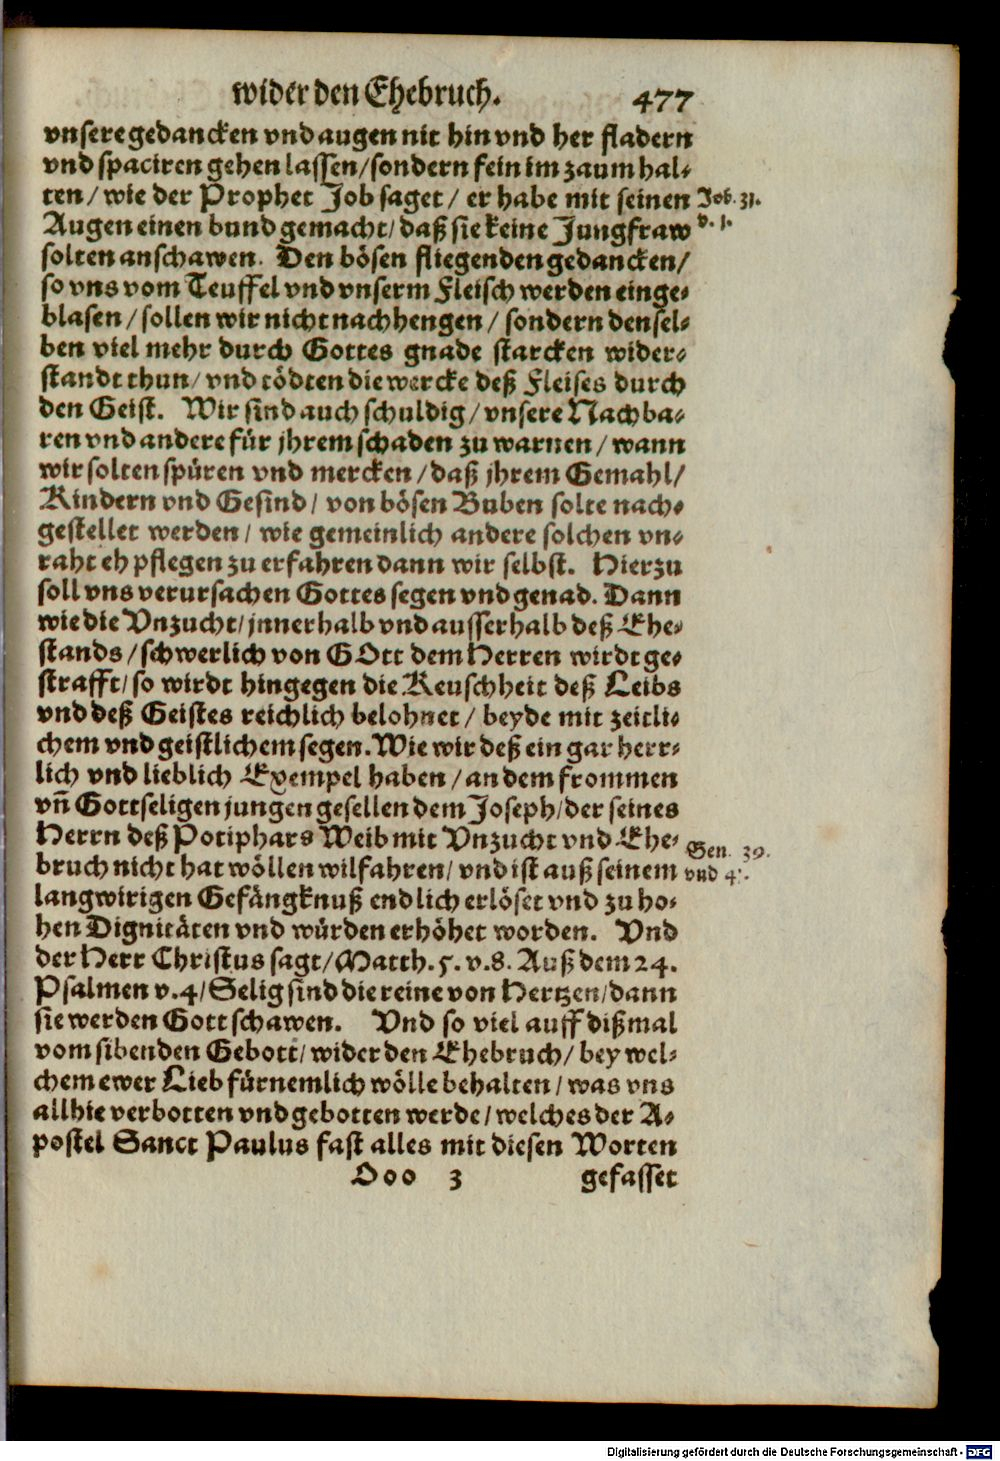 wider den Ehebruch. 477
vnsere gedancken vnd augen nit hin vnd her fladern
vnd spaciren gehen lassen/sondern fein im zaum hal-
ten/wie der Prophet Job saget/ er habe mit seinen Job. 31.
Augen einen bund gemacht/daß sie keine Jungfraw v. 1.
solten anschawen. Den bösen fliegenden gedancken/
so vns vom Teuffel vnd vnserm Fleisch werden einge-
blasen/sollen wir nicht nachhengen/ sondern densel-
ben viel mehr durch Gottes gnade starcken wider-
standt thun/ vnd tödten die wercke deß Fleises durch
den Geist. Wir sind auch schuldig/vnsere Nachba-
ren vnd andere für jhrem schaden zu warnen/wann
wir solten spüren vnd mercken/daß jhrem Gemahl/
Kindern vnd Gesind/ von bösen Buben solte nach-
gestellet werden/ wie gemeinlich andere solchen vn-
raht eh pflegen zu erfahren dann wir selbst. Hierzu
soll vns verursachen Gottes segen vnd genad. Dann
wie die Vnzucht/jnnerhalb vnd ausserhalb deß Ehe-
stands/schwerlich von GOtt dem Herren wirdt ge-
strafft/so wirdt hingegen die Keuschheit deß Leibs
vnd deß Geistes reichlich belohnet/ beyde mit zeitli-
chem vnd geistlichem segen. Wie wir deß ein gar herr-
lich vnd lieblich Exempel haben/an dem frommen
vñ Gottseligen jungen gesellen dem Joseph/der seines
Herrn deß Potiphars Weib mit Vnzucht vnd Ehe- Gen. 39.
bruch nicht hat wöllen wilfahren/ vnd ist auß seinem vnd 4
langwirigen Gefängknuß endlich erlöset vnd zu ho-
hen Dignitäten vnd würden erhöhet worden. Vnd
der Herr Christus sagt/Matth. 5. v. 8. Auß dem 24.
Psalmen v. 4/Selig sind die reine von Hertzen/dann
sie werden Gott schawen. Vnd so viel auff dißmal
vom sibenden Gebott/wider den Ehebruch/bey wel-
chem ewer Lieb fürnemlich wölle behalten/was vns
allhie verbotten vnd gebotten werde/welches der A-
postel Sanct Paulus fast alles mit diesen Worten
Ooo 3 gefasset
Digitalisierung gefördert durch die Deutsche Forschungsgemeinschaft - DFG